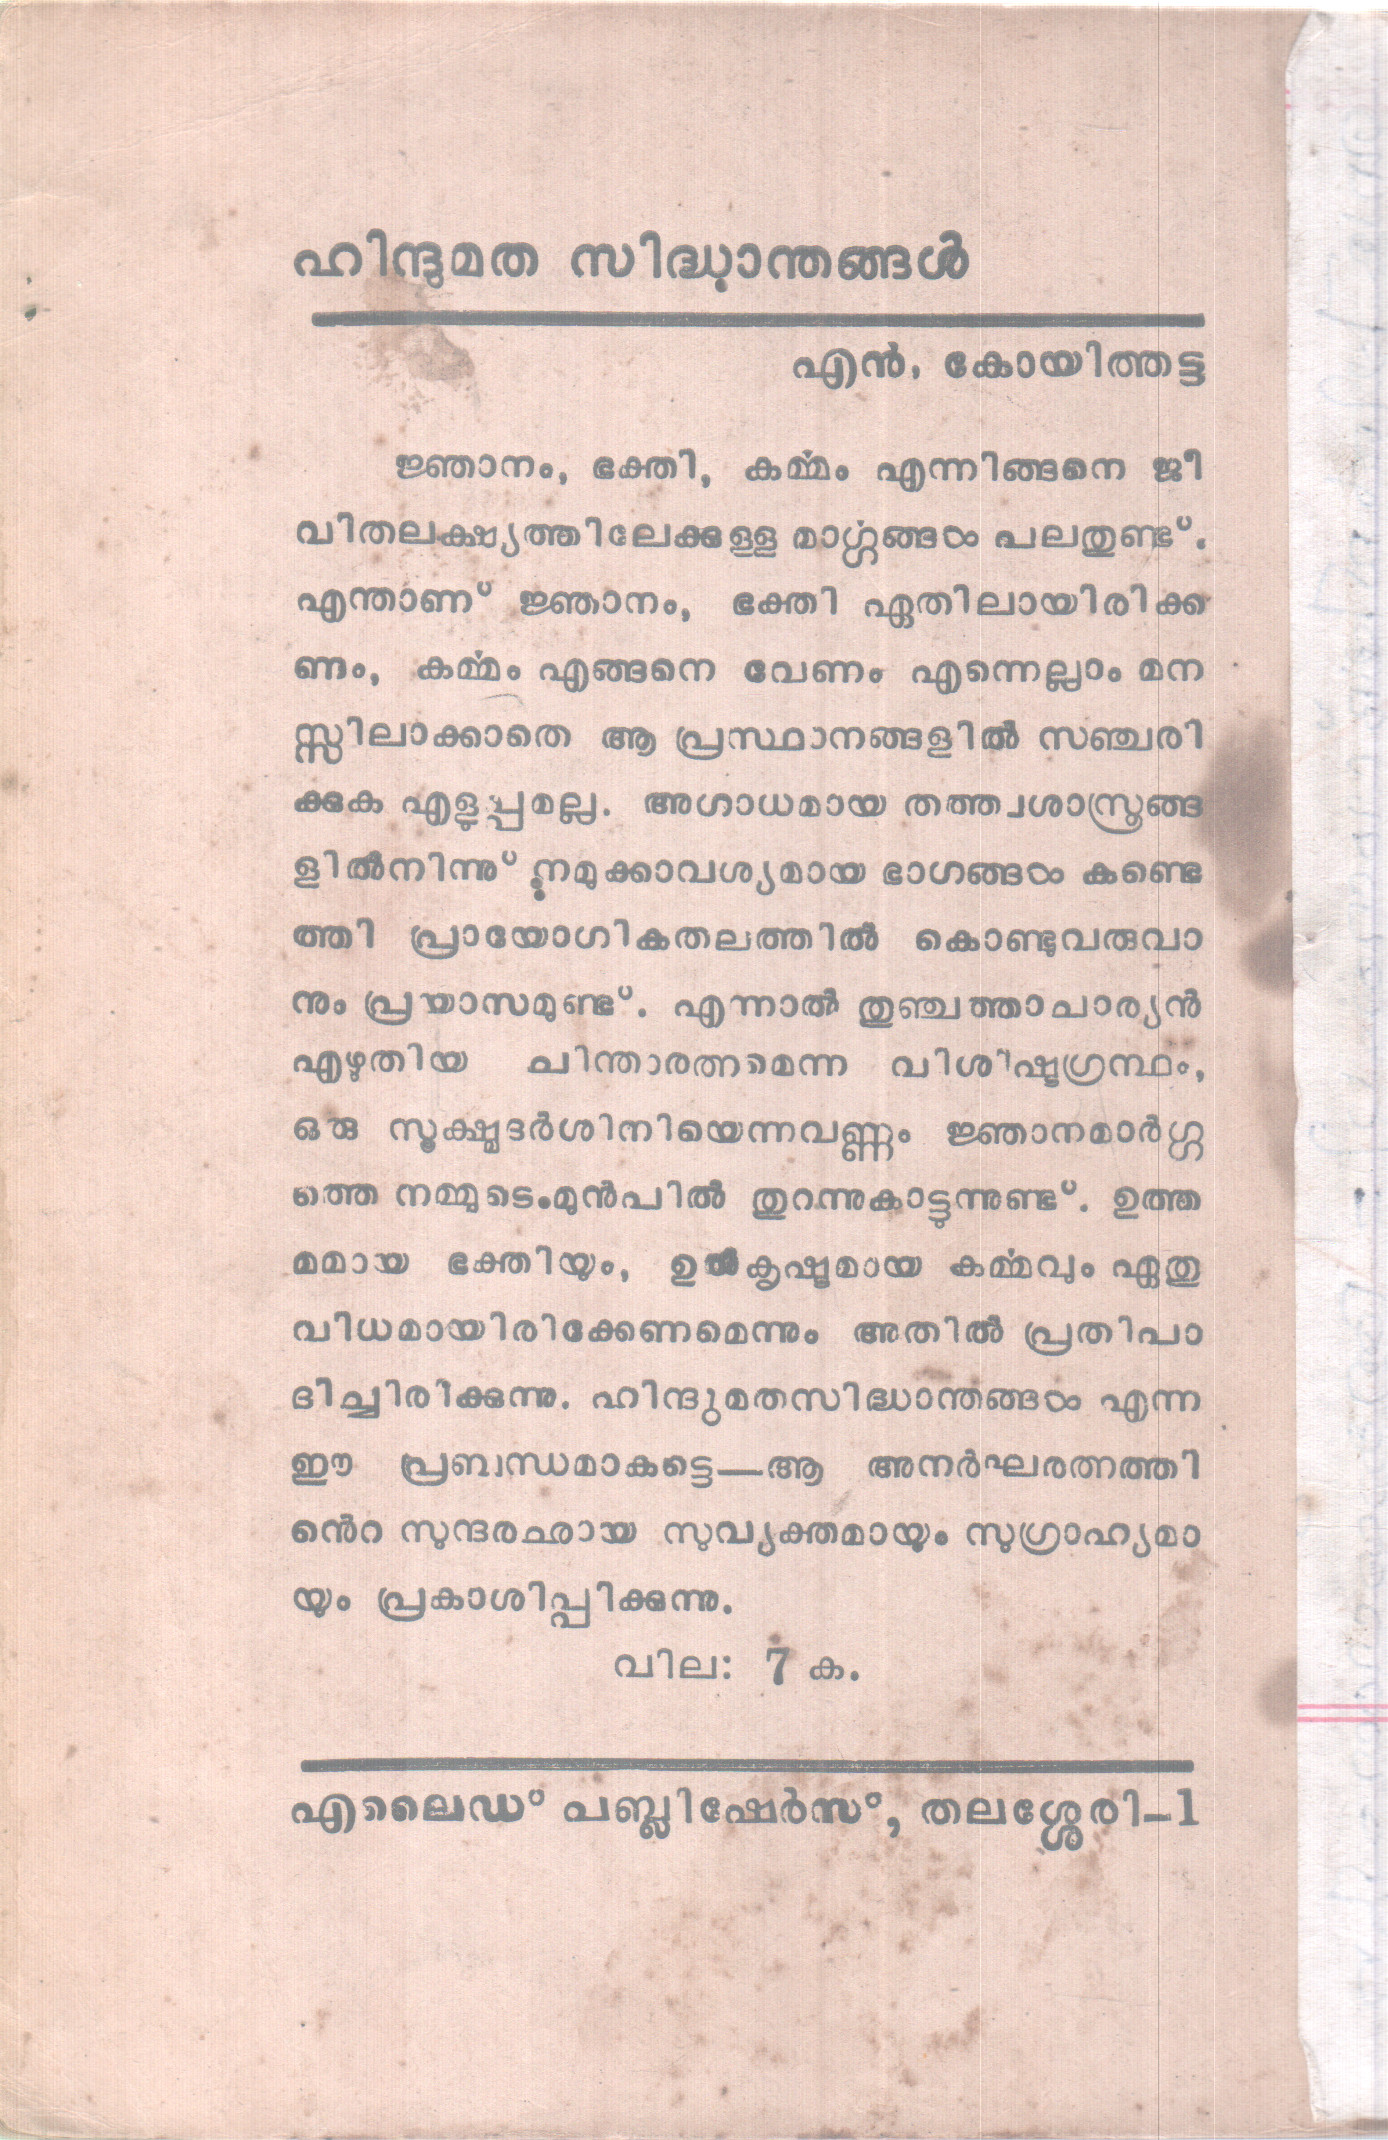 ഹിന്ദുമത സിദ്ധാന്തങ്ങൾ
എൻ. കോയിത്തട്ട
ജ്ഞാനം, ഭക്തി, കൎമ്മം എന്നിങ്ങനെ ജീ
വിതലക്ഷ്യത്തിലേക്കുള്ള മാൎഗ്ഗങ്ങൾ പലതുണ്ട്.
എന്താണ് ജ്ഞാനം, ഭക്തി ഏതിലായിരിക്ക
ണം, കൎമ്മം എങ്ങനെ വേണം എന്നെല്ലാം മന
സ്സിലാക്കാതെ ആ പ്രസ്ഥാനങ്ങളിൽ സഞ്ചരി
ക്കുക എളുപ്പമല്ല. അഗാധമായ തത്ത്വശാസ്ത്രങ്ങ
ളിൽനിന്നു് നമുക്കാവശ്യമായ ഭാഗങ്ങൾ കണ്ടെ
ത്തി പ്രായോഗികതലത്തിൽ കൊണ്ടുവരുവാ
നും പ്രയാസമുണ്ട്. എന്നാൽ തുഞ്ചത്താചാര്യൻ
എഴുതിയ ചിന്താരത്നമെന്ന വിശിഷ്ടഗ്രന്ഥം,
ഒരു സൂക്ഷ്മദർശിനിയെന്നവണ്ണം ജ്ഞാനമാർഗ്ഗ
ത്തെ നമ്മുടെ മുൻപിൽ തുറന്നുകാട്ടുന്നുണ്ട്. ഉത്ത
മമായ ഭക്തിയും, ഉൽകൃഷ്ടമായ കൎമ്മവും ഏതു
വിധമായിരിക്കേണമെന്നും അതിൽ പ്രതിപാ
ദിച്ചിരിക്കുന്നു. ഹിന്ദുമതസിദ്ധാന്തങ്ങൾ എന്ന
ഈ പ്രബന്ധമാകട്ടെ—ആ അനർഘരത്നത്തി
ൻെറ സുന്ദരഛായ സുവ്യക്തമായും സുഗ്രാഹ്യമാ
യും പ്രകാശിപ്പിക്കുന്നു.
വില: 7 ക.
എലൈഡ് പബ്ലിഷേർസ്, തലശ്ശേരി–1